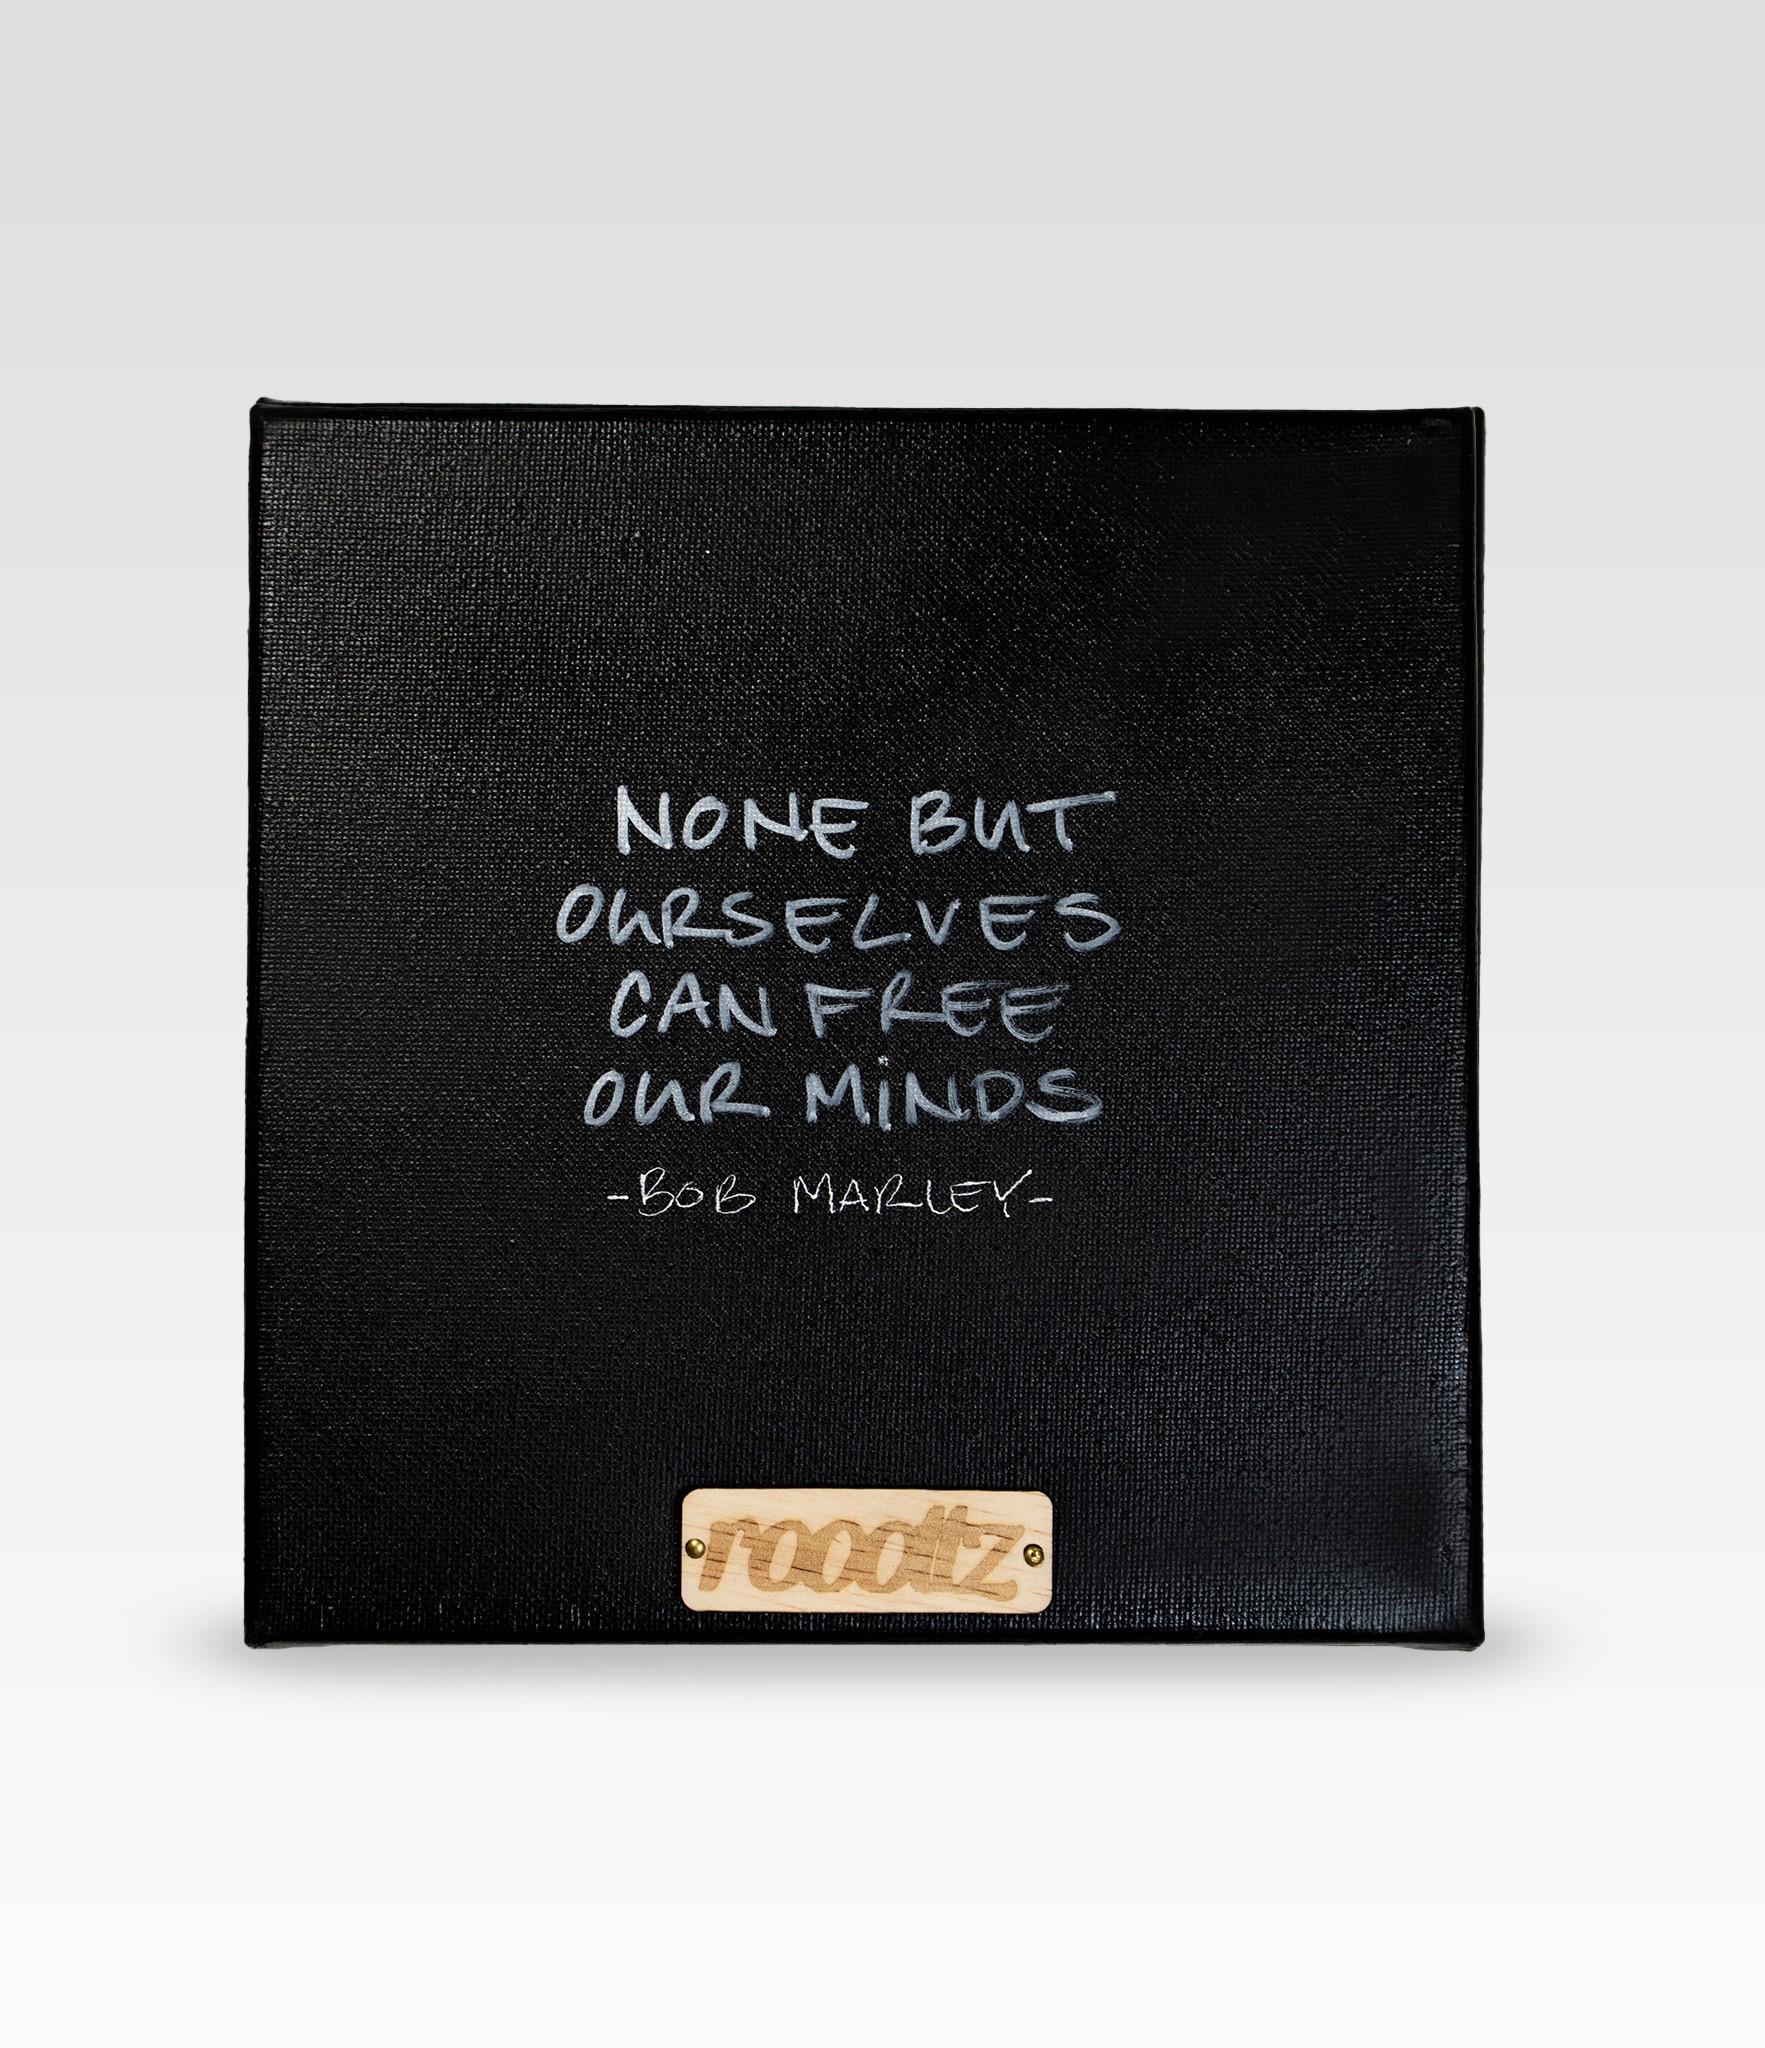 NONE BUT
OURSELVES
CAN FREE
OUR MiNDS
-BOB MARLEY-
rooottz